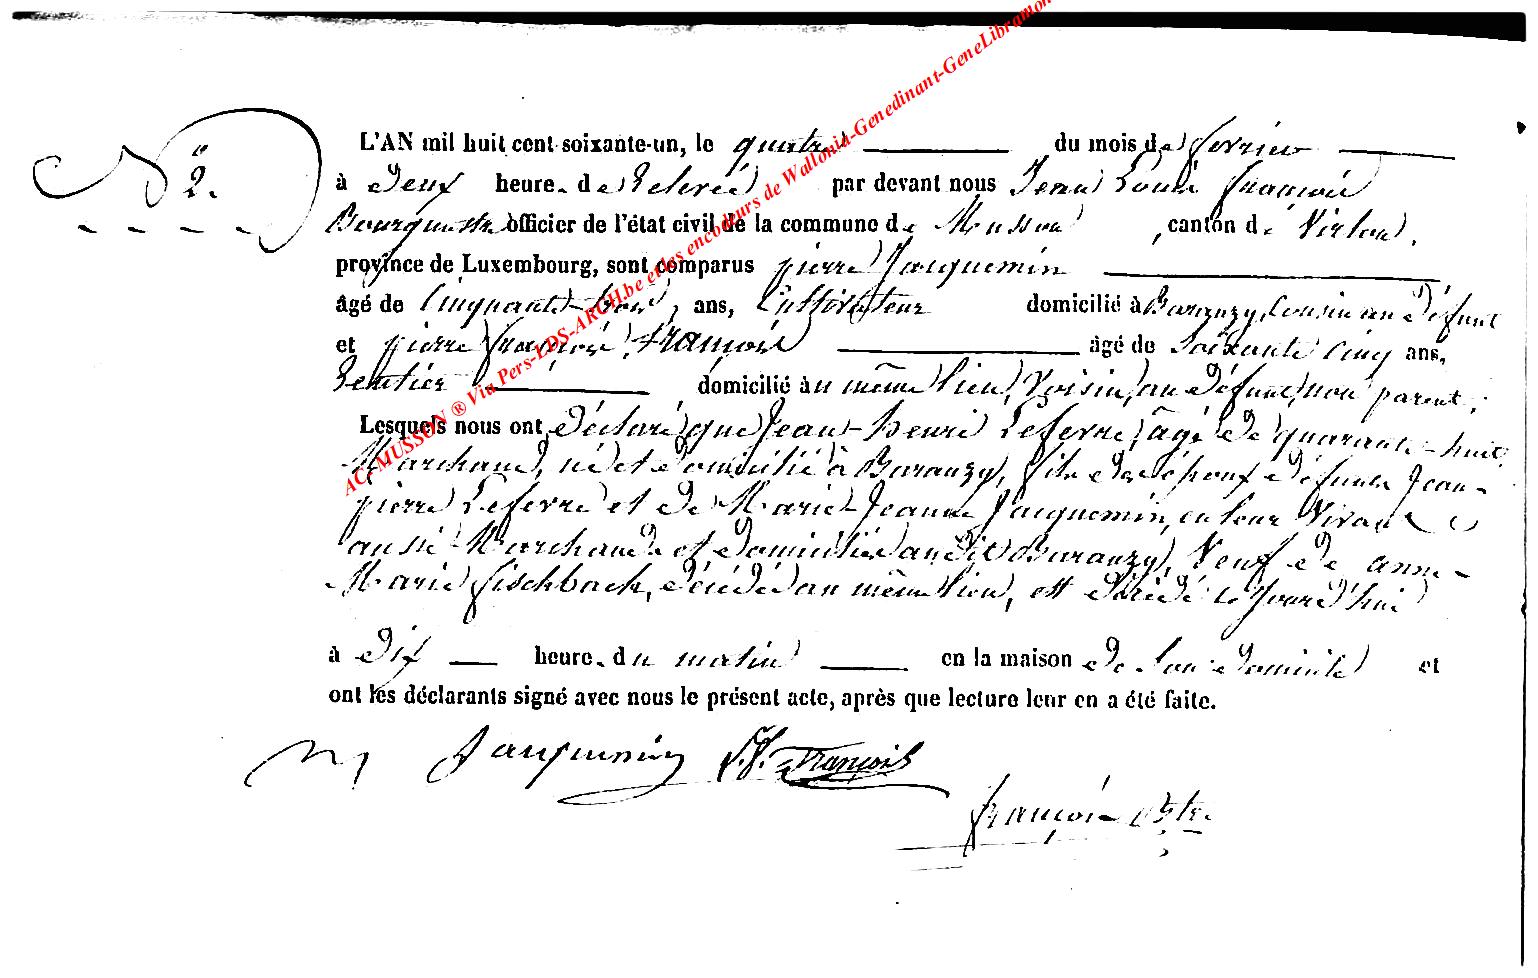 N° 2.
L'AN mil huit cent soixante-un, le quatre du mois de fevrier
à deux heure. de relevée par devant nous Jean Louis françois
Bourguestre officier de l'état civil de la commune de Musson, canton de Virton,
province de Luxembourg, sont comparus pierre Jacquemin
âgé de Cinquante-trois ans, Cultivateur domicilié à Baranzy, Cousin au défunt
et pierre françois françois âgé de Soixante cinq ans,
Rentier domicilié au même lieu, Voisin, au défunt, non parent.
Lesquels nous ont déclaré que Jean-henri Lefevre, âgé de quarante-huit,
Marchand, né et domicilié à Baranzy, fils des époux défunts Jean-
pierre Lefevre et de Marie-Jeanne Jacquemin, en leur Vivant
aussi Marchands et domiciliés au dit Baranzy, Veuf de anne-
Marie fischbach, décédée au même lieu, est décédé cejourd'hui
à dix heure. du matin en la maison de son domicile et
ont les déclarants signé avec nous le présent acte, après que lecture leur en a été faite.
Jacquemin P.F. François
françois Bstre
AC MUSSON ® Via Pers-LDS-ARCH.be et les encodeurs de Wallonia-Genedinant-GeneLibramon